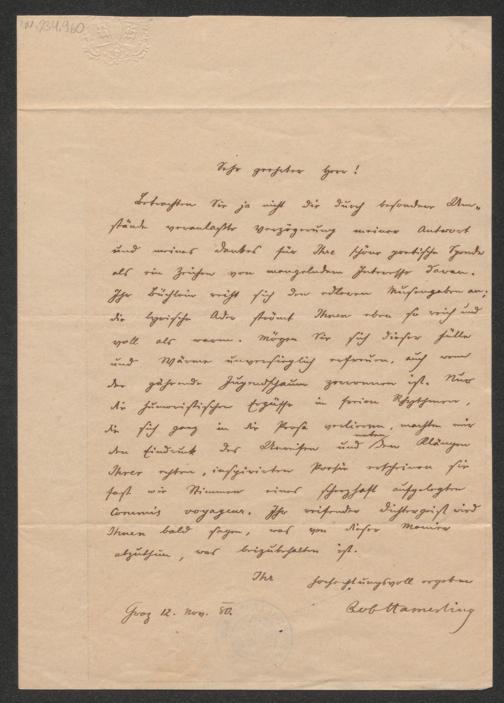 N. 234.960
Sehr geehrter Herr!
Betrachten Sie ja nicht die durch besondere Um-
stände veranlaßte Verzögerung meiner Antwort
und meines Dankes für Ihre schöne poetische Spende
als ein Zeichen von mangelndem Interesse daran.
Ihr Büchlein reiht sich den edleren Musengaben an;
die lyrische Ader strömt Ihnen eben so reich und
voll als warm. Mögen Sie sich dieser Fülle
und Wärme unversieglich erfreuen, auch wenn
der gährende Jugendschaum zerronnen ist. Nur
die humoristischen Ergüsse in freien Rhythmen,
die sich ganz in die Prosa verlieren, machten mir
den Eindruck des Unreifen und unter den Klängen
Ihrer echten, inspirirten Poesie erscheinen sie
fast wie Stimmen eines scherzhaft aufgelegten
Commis voyageur. Ihr reifender Dichtergeist wird
Ihnen bald sagen, was von dieser Manier
abzuthun, was beizubehalten ist.
Ihr hochachtungsvoll ergebener
Graz 12. Nov. 80. Rob Hamerling